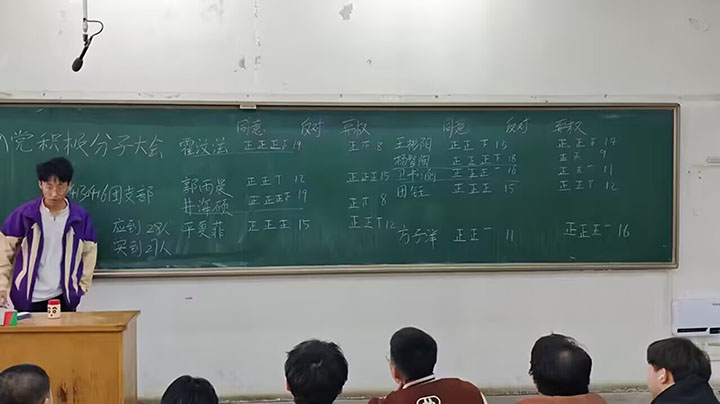 同意 反对 弃权 同意 反对 弃权
党积极分子大会
霍汶法 正正正正 19 正下 8
郭雨晨 正正丅 12 正正正 15
井海硕 正正正正 19 正下 8
应到28人
实到27人
于夏菲 正正正 15 正正丅 12
王彬阳 正正下 13 正正正 14
正正正下 18 正正 9
正正正一 16 正正一 11
田钰 正正正 15 正正丅 12
方子洋 正正一 11 正正正一 16
团支部